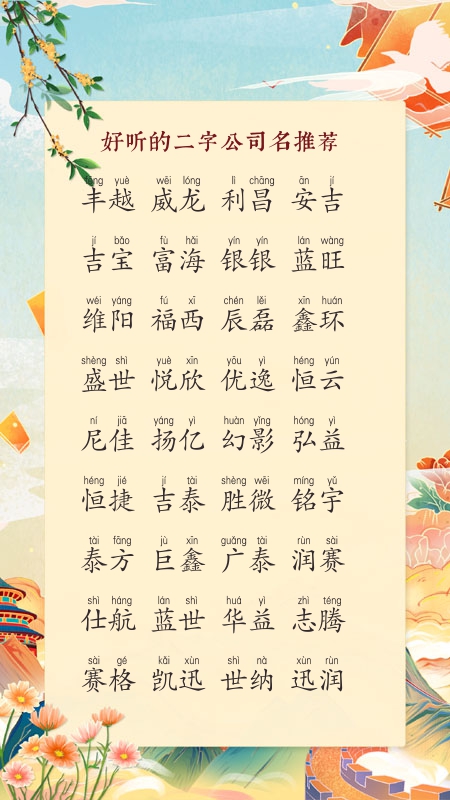 好听的二字公司名推荐
fēng yuè wēi lóng lì chāng ān jí
丰越 威龙 利昌 安吉
jí bǎo fù hǎi yín yín lán wàng
吉宝 富海 银银 蓝旺
wéi yáng fú xī chén lěi xīn huán
维阳 福西 辰磊 鑫环
shèng shì yuè xīn yōu yì héng yún
盛世 悦欣 优逸 恒云
ní jiā yáng yì huàn yǐng hóng yì
尼佳 扬亿 幻影 弘益
héng jié jí tài shèng wēi míng yǔ
恒捷 吉泰 胜微 铭宇
tài fāng jù xīn guǎng tài rùn sài
泰方 巨鑫 广泰 润赛
shì háng lán shì huá yì zhì téng
仕航 蓝世 华益 志腾
sài gé kǎi xùn shì nà xùn rùn
赛格 凯迅 世纳 迅润